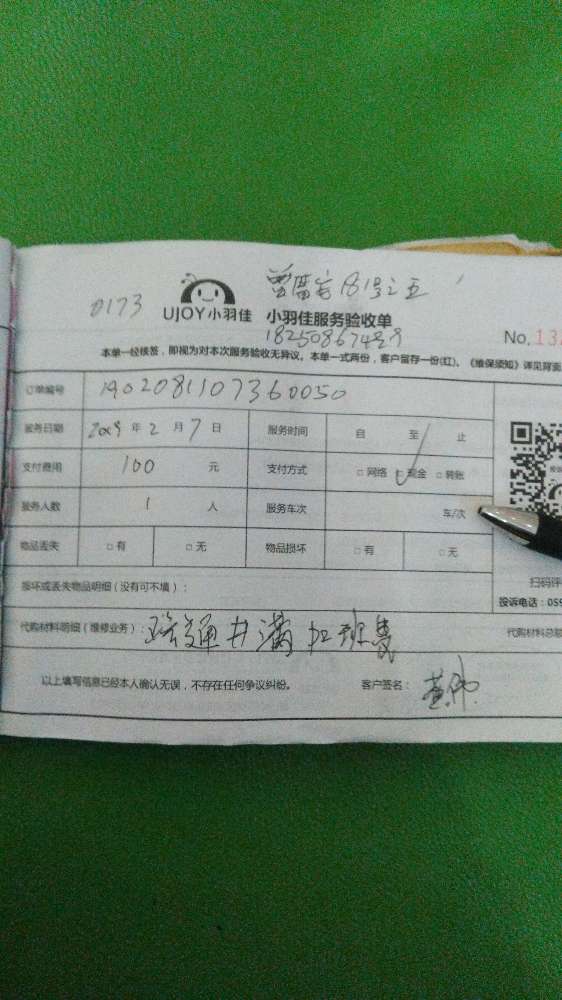 0173 UJOY小羽佳 小羽佳服务验收单
No.13
本单一经核签，即视为对本次服务验收无异议。本单一式两份，客户留存一份(红)。《维保须知》详见背面
订单编号 1902081107360050
服务日期 2019 年 2 月 7 日 服务时间 自 至 止
支付费用 100 元 支付方式 □网络 □现金 □转账
服务人数 1 人 服务车次 车/次
物品丢失 □有 □无 物品损坏 □有 □无
损坏或丢失物品明细（没有可不填）：
扫码评
投诉电话：059
代购材料明细（维修业务）： 疏通井满 加班费
代购材料总额
以上填写信息已经本人确认无误，不存在任何争议纠纷。 客户签名：